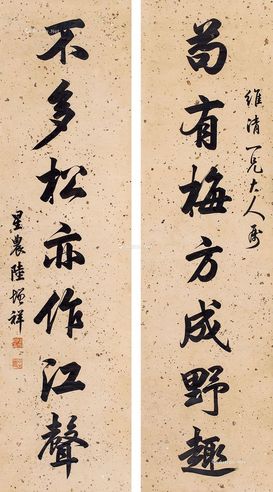 苟有梅方成野趣
維清一兄大人屬
不多松亦作江聲
星農陸增祥